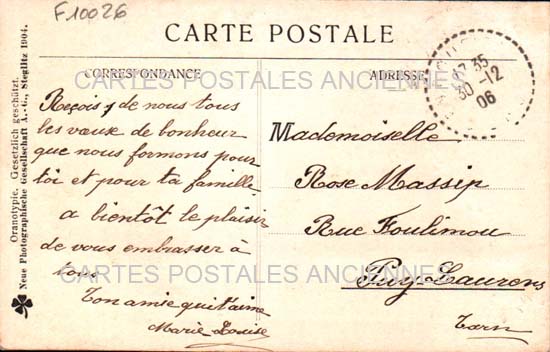 F10026
CARTE POSTALE
CORRESPONDANCE
ADRESSE
17 35
30-12
06
CARTES POSTALES ANCIENNES
Reçois de nous tous
les vœux de bonheur
que nous formons pour
toi et pour ta famille
a bientôt le plaisir
de vous embrasser à
tous
Ton amie qui t'aime
Marie Louise
Mademoiselle
Rose Massip
Rue Foulimou
Puy-Laurens
Tarn
CARTES POSTALES ANCIENNES
Oranotypie. Gesetzlich geschützt.
Neue Photographische Gesellschaft A.-G., Steglitz 1904.